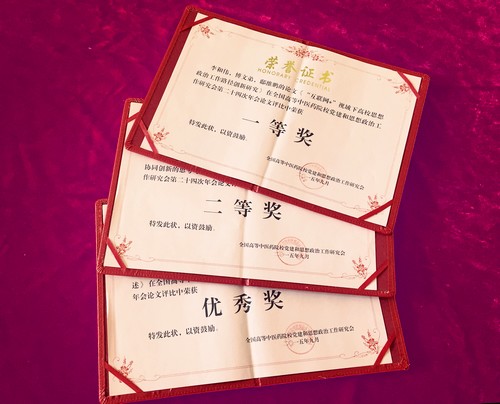 荣誉证书
HONORARY CREDENTIAL
李和伟，傅文第，鄢维鹏的论文《“互联网+”视域下高校思想
政治工作路径创新研究》在全国高等中医药院校党建和思想政治工
作研究会第二十四次年会论文评比中荣获
一等奖
特发此状，以资鼓励。
全国高等中医药院校党建和思想政治工作研究会
二〇一五年九月
协同创新的思
作研究会第二十四次年会论文评
二等奖
特发此状，以资鼓励。
全国高等中医药院校党建和思想政治工作研究会
二〇一五年九月
述》在全国高等
年会论文评比中荣获
优秀奖
特发此状，以资鼓励。
全国高等中医药院校党建和思想政治工作研究会
二〇一五年九月